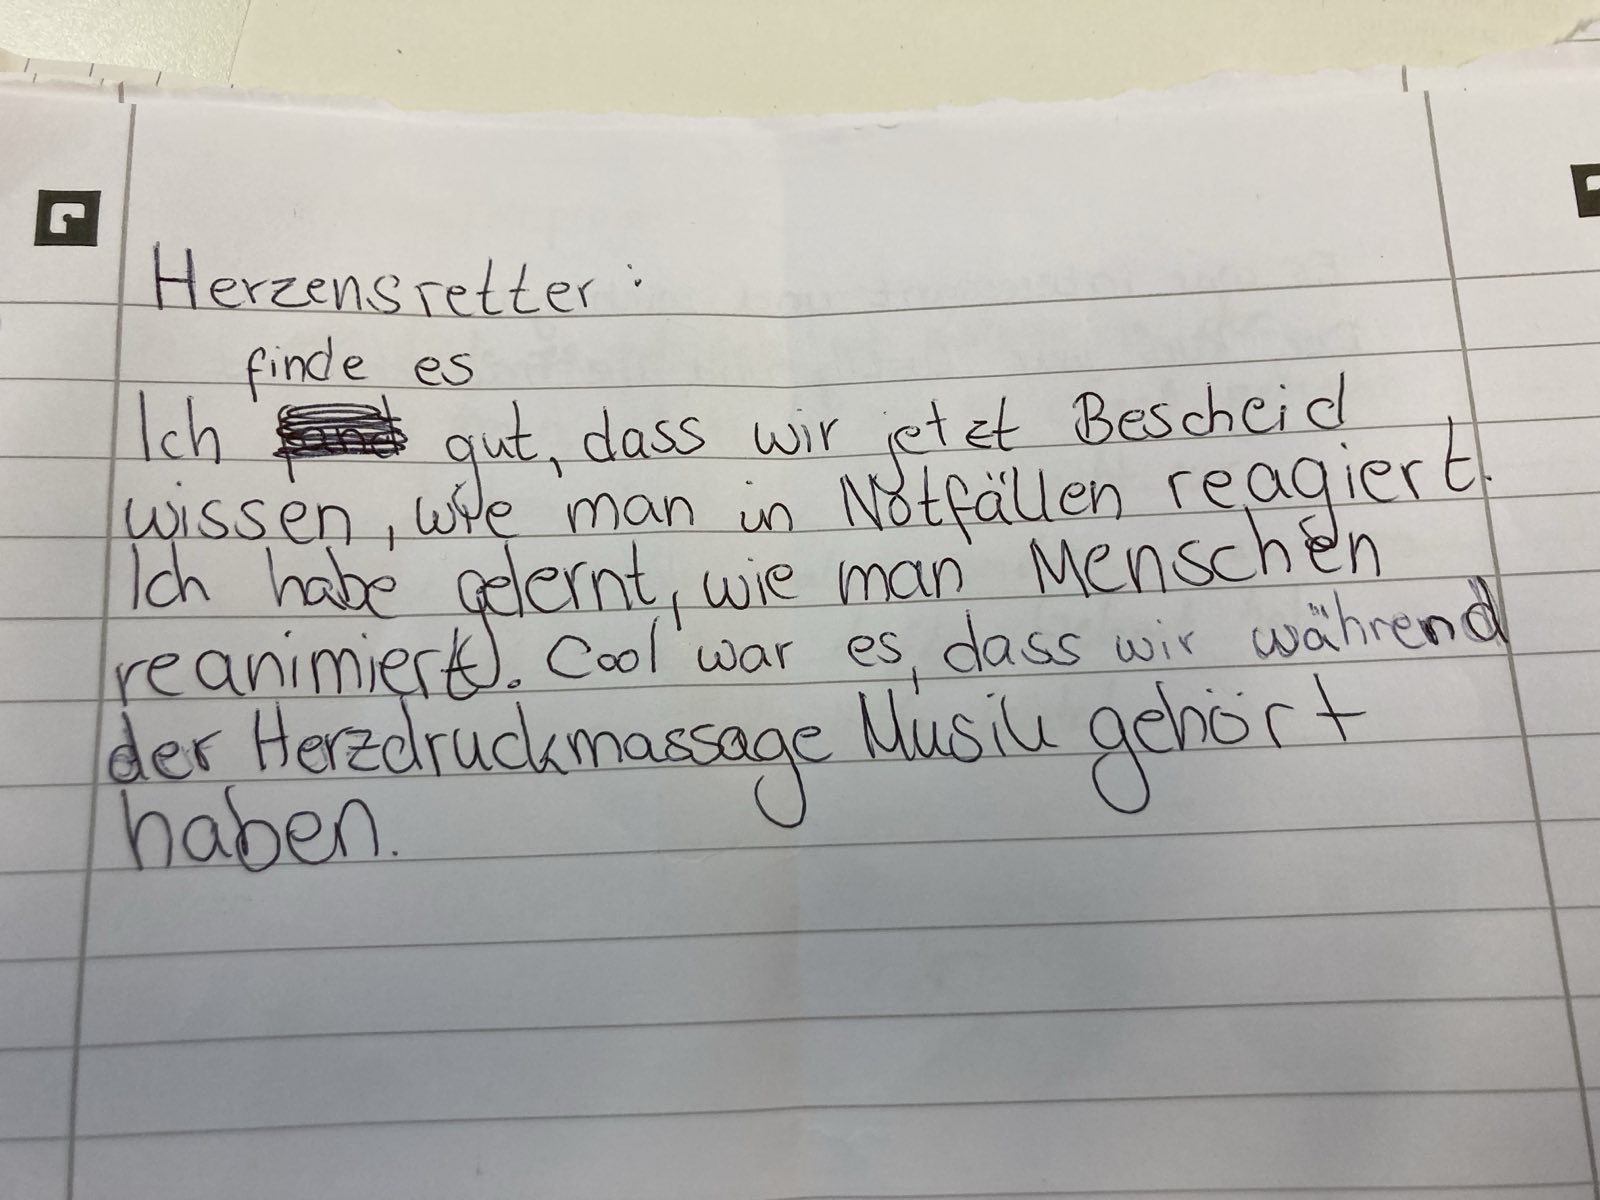 Herzensretter:
finde es
Ich gut, dass wir jetzt Bescheid
wissen, wie man in Notfällen reagiert.
Ich habe gelernt, wie man Menschen
reanimiert. Cool war es, dass wir während
der Herzdruckmassage Musik gehört
haben.